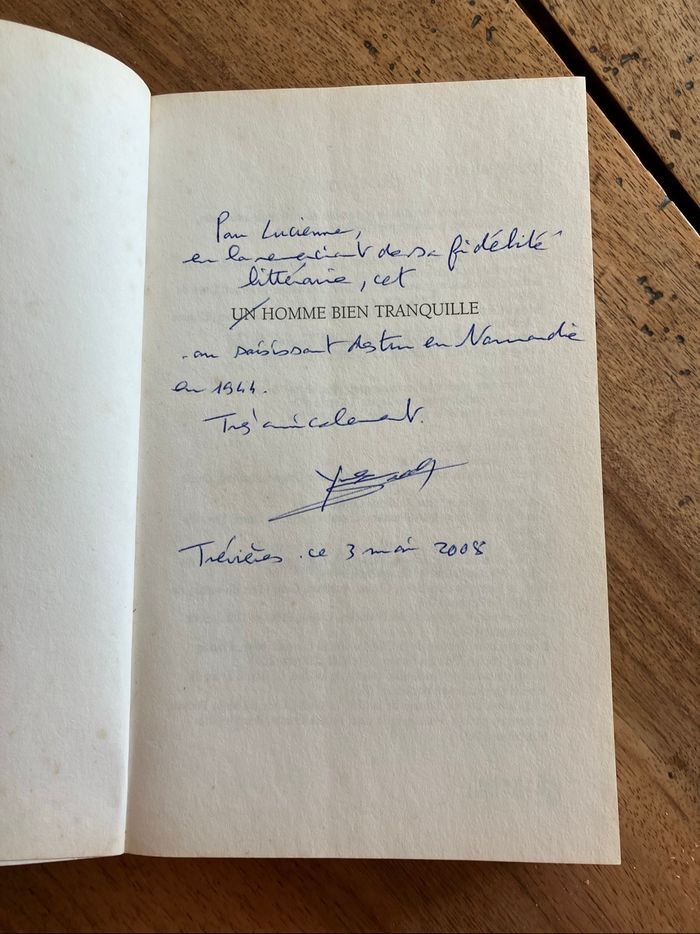 Pour Lucienne,
en la remerciant de sa fidélité
littéraire, cet
UN HOMME BIEN TRANQUILLE
au saisissant destin en Normandie
en 1944.
Très amicalement.
Trévières . ce 3 mai 2008